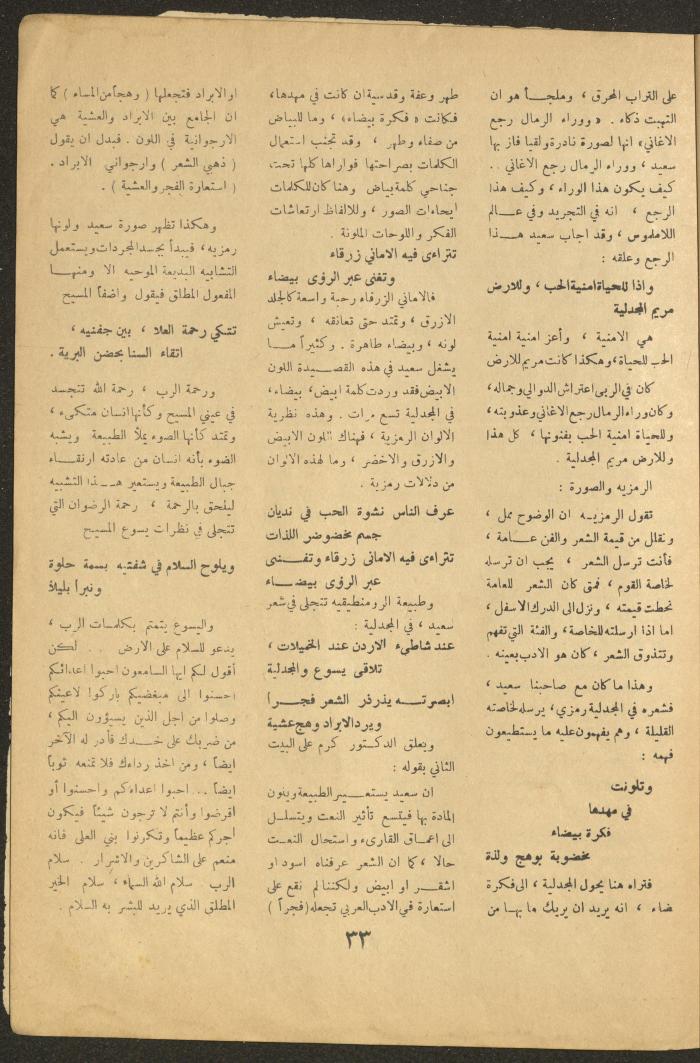 على التراب المحرق ، وملجـأ هو ان
التهبت ذكاء . « ووراء الرمال رجع
الاغاني» انها لصورة نادرة ولقيا فاز بها
سعيد ، ووراء الرمال رجع الاغاني . .
كيف يكون هذا الوراء ، وكيف هذا
الرجع ، انه في التجريد وفي عـــالم
اللاملموس ، وقد اجاب سعيد هـــذا
الرجع وعلقه :
واذا للحياة امنية الحب ، وللارض
مريم المجدلية
هي الامنية ، وأعز امنية امنية
الحب للحياة، وهكذا كانت مريم للارض
كان في الربى اعتراش الدوالي وجماله،
وكان وراء الرمال رجع الاغاني وعذوبته،
وللحياة امنية الحب بفتونها ، كل هذا
وللارض مريم المجدلية .
الرمزيه والصورة :
تقول الرمزيـه ان الوضوح ممل ،
ونقلل من قيمة الشعر والفن عـامة ،
فأنت ترسل الشعر ، يجب ان ترسله
لخاصة القوم ، فمتى كان الشعر للعامة
نحطت قيمته ، ونزل الى الدرك الاسفل ،
اما اذا ارسلته للخاصة، والفئة التي تفهم
وتتذوق الشعر ، كان هو الادب بعينه .
وهذا ما كان مع صاحبنا سعيد ،
فشعره في المجدلية رمزي، يرسله لخاصته
القليلة ، وهم يفهمون عليه ما يستطيعون
فهمه :
وتلونت
في مهدها
فكرة بيضاء
مخضوبة بوهج ولذة
فتراه هنا يحول المجدلية ، الى فكرة
ضاء ، انه يريد ان يريك ما بهـا من
طهر وعفة وقدسية ان كانت في مهدها،
فكانت « فكرة بيضاء» ، وما للبياض
من صفاء وطهر ، وقد تجنب استعمال
الكلمات بصراحتها فواراها كلها تحت
جناحي كلمة بياض وهنا كان للكلمات
ايحاءات الصور ، وللالفاظ ارتعاشات
الفكر واللوحات الملونة .
تتراءى فيه الاماني زرقاء
وتفنى عبر الرؤى بيضاء
فالاماني الزرقاء رحبة واسعة كالجلد
الازرق ، وتمتد حتى تعانقه ، وتعيش
لونه ، وبيضاء طاهرة . وكثيراً مـــا
يشغل سعيد في هذه القصـيدة اللون
الابيض فقد وردت كلمة ابيض، بيضاء،
في المجدلية تسع مرات . وهذه نظرية
الالوان الرمزية ، فهناك اللون الابيض
والازرق والاخضر ، وما لهذه الالوان
من دلالات رمزية .
عرف الناس نشوة الحب في نديان
جسم مخضوضر اللذات
تتراءى فيه الاماني زرقاء وتفـنـى
عبر الرؤى بيضـــاء
وطبيعة الرومنطيقيه تتجلى في شعر
سعيد ، في المجدلية :
عند شاطىء الاردن عند الخميلات ،
تلاقى يسوع والمجدلية
ابصرتـــه يذرذر الشعر فجـــرا
ويرد الابراد وهج عشية
ويعلق الدكـتور كرم على البيت
الثاني بقوله :
ان سعيد يستعـير الطبيعة ويلون
المادة بها فيتسع تأثير النعت ويتسلسل
الى اعماق القارىء واستحال النعـت
حالا ، كما ان الشعر عرفناه اسود او
اشقـر او ابيض ولكننا لم نقع على
استعارة في الادب العربي تجعله (فجراً )
او الابراد فتجعلها ( وهجاً من المساء ) كما
ان الجامع بين الابراد والعشية هي
الارجوانية في اللون . فبدل ان يقول
( ذهبي الشعر ) وارجواني الابراد .
( استعارة الفجر والعشية ) .
وهكذا تظهر صورة سعيد ولونها
رمزيه، فيبدأ بجسد المجردات ويستعمل
التشابيه البديعة الموحيه الا ومنهـا
المفعول المطلق فيقول واضفاً المسيح
تتكي رحمة العلا ، بين جفنيه ،
اتقاء السنا بحضن البرية .
ورحمة الرب ، رحمة الله تتجسد
في عيني المسيح وكأنها انسان متكىء ،
وتمتد كأنها الضوء يملأ الطبيعة ويشبه
الضوء بأنه انسان من عادته ارتقـاء
جبال الطبيعة ويستعير هــذا التشبيه
ليلحق بالرحمة ، رحمة الرضوان التي
تتجلى في نظرات يسوع المسيح
ويلوح السلام في شفتيه بسمة حلوة
ونبرا بليلا
واليسوع يتمتم بكلمات الرب ،
يدعو للسلام على الارض . . لكن
أقول لكم ايها السامعون احبوا اعدائكم
احسنوا الى مبغضيكم باركوا لاعنيكم
وصلوا من اجل الذين يسيؤون اليكم ،
من ضربك على خـدك فأدر له الآخر
ايضاً ، ومن اخذ رداءك فلا تمنعه ثوباً
ايضاً ... احبوا اعداءكم واحسنوا أو
اقرضوا وأنتم لا ترجون شيئاً فيكون
أجركم عظيماً وتكونوا بني العلى فانه
منعم على الشاكرين والاشرار . سلام
الرب . سلام الله السماء ، سلام الخير
المطلق الذي يريد للبشر به السلام .
٣٣